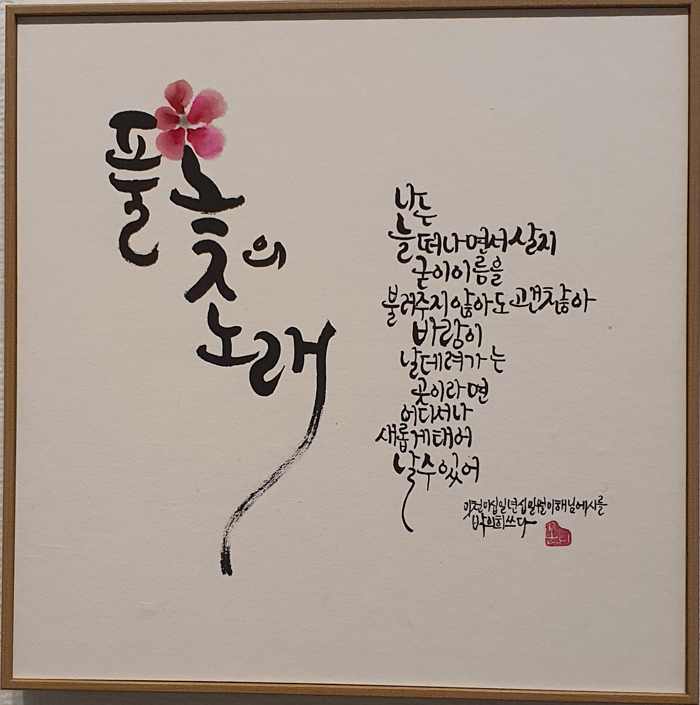 풀꽃의
노래
나는
늘 떠나면서 살지
굳이 이름을
불러주지 않아도 괜찮아
바람이
날 데려가는
곳이라면
어디서나
새롭게 태어
날 수 있어
이천이십일년 십일월
쓰다